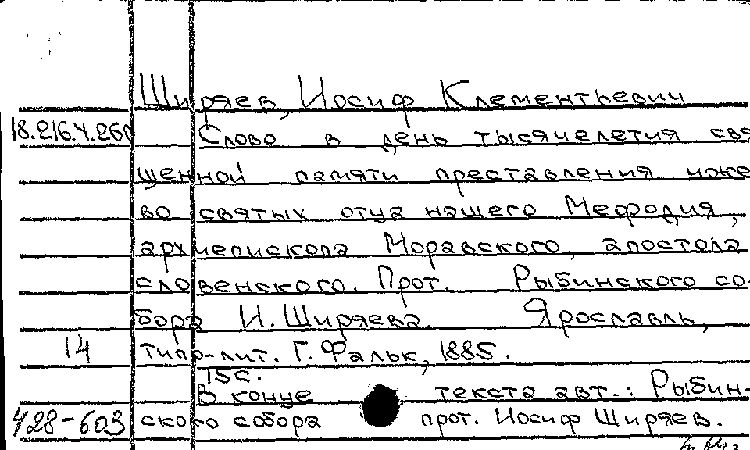 Ширяев, Иосиф Клементьевич
18.216.4.260 Слово в день тысячелетия свя
щенной памяти преставления иже
во святых отца нашего Мефодия,
архиепископа Моравского, апостола
словенского. Прот. Рыбинского со-
бора И. Ширяева. Ярославль,
14 типо-лит. Г. Фальк, 1885.
15с.
В конце текста авт.: Рыбин-
428-603 ского собора прот. Иосиф Ширяев.